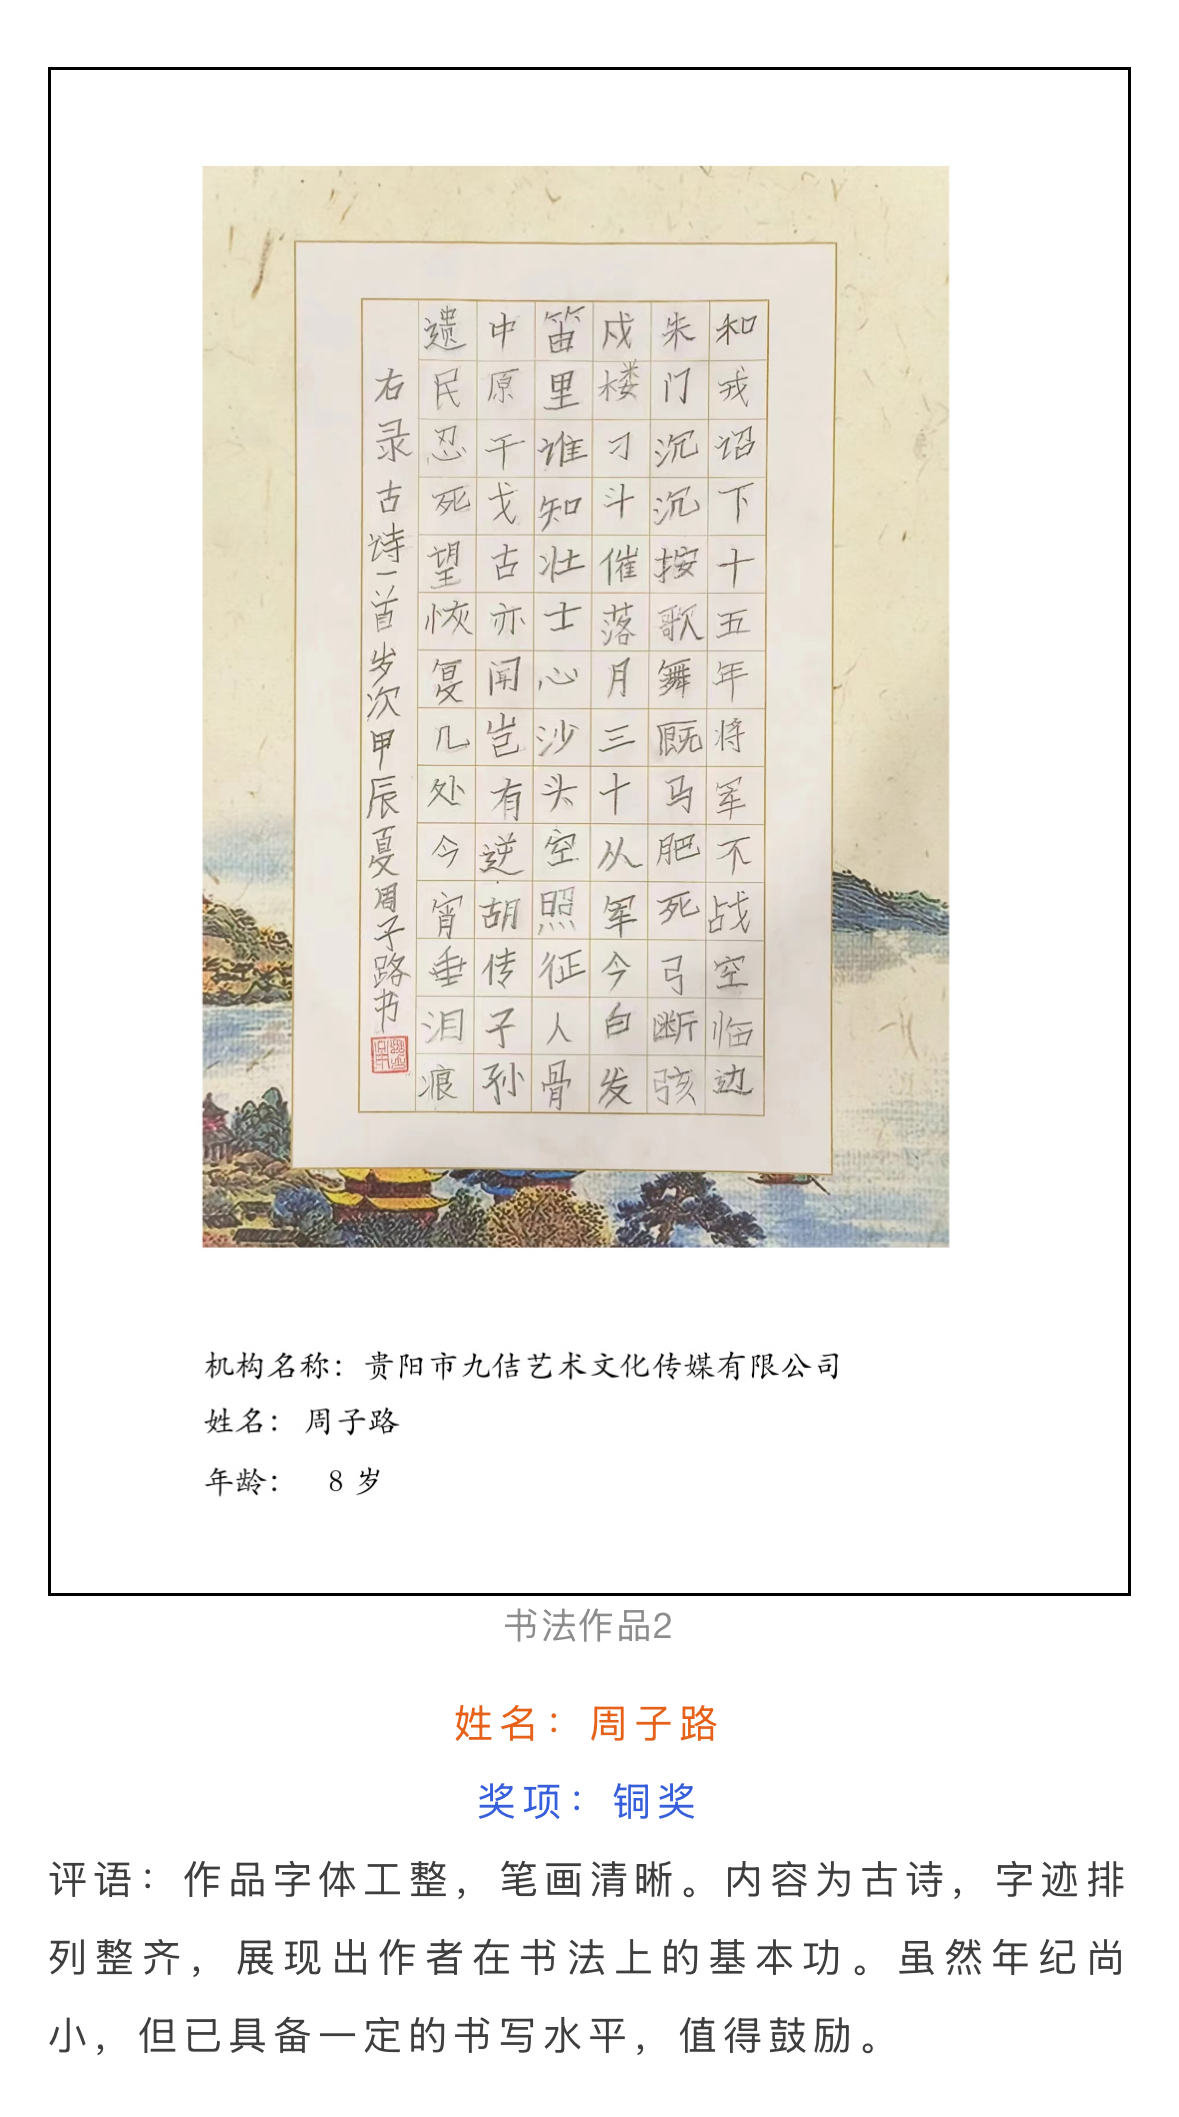 和戎诏下十五年将军不战空临边
朱门沉沉按歌舞厩马肥死弓断弦
戍楼刁斗催落月三十从军今白发
笛里谁知壮士心沙头空照征人骨
中原干戈古亦闻岂有逆胡传子孙
遗民忍死望恢复几处今宵垂泪痕
右录古诗一首岁次甲辰夏周子路书
机构名称：贵阳市九佶艺术文化传媒有限公司
姓名：周子路
年龄：8 岁
书法作品2
姓名：周子路
奖项：铜奖
评语：作品字体工整，笔画清晰。内容为古诗，字迹排
列整齐，展现出作者在书法上的基本功。虽然年纪尚
小，但已具备一定的书写水平，值得鼓励。